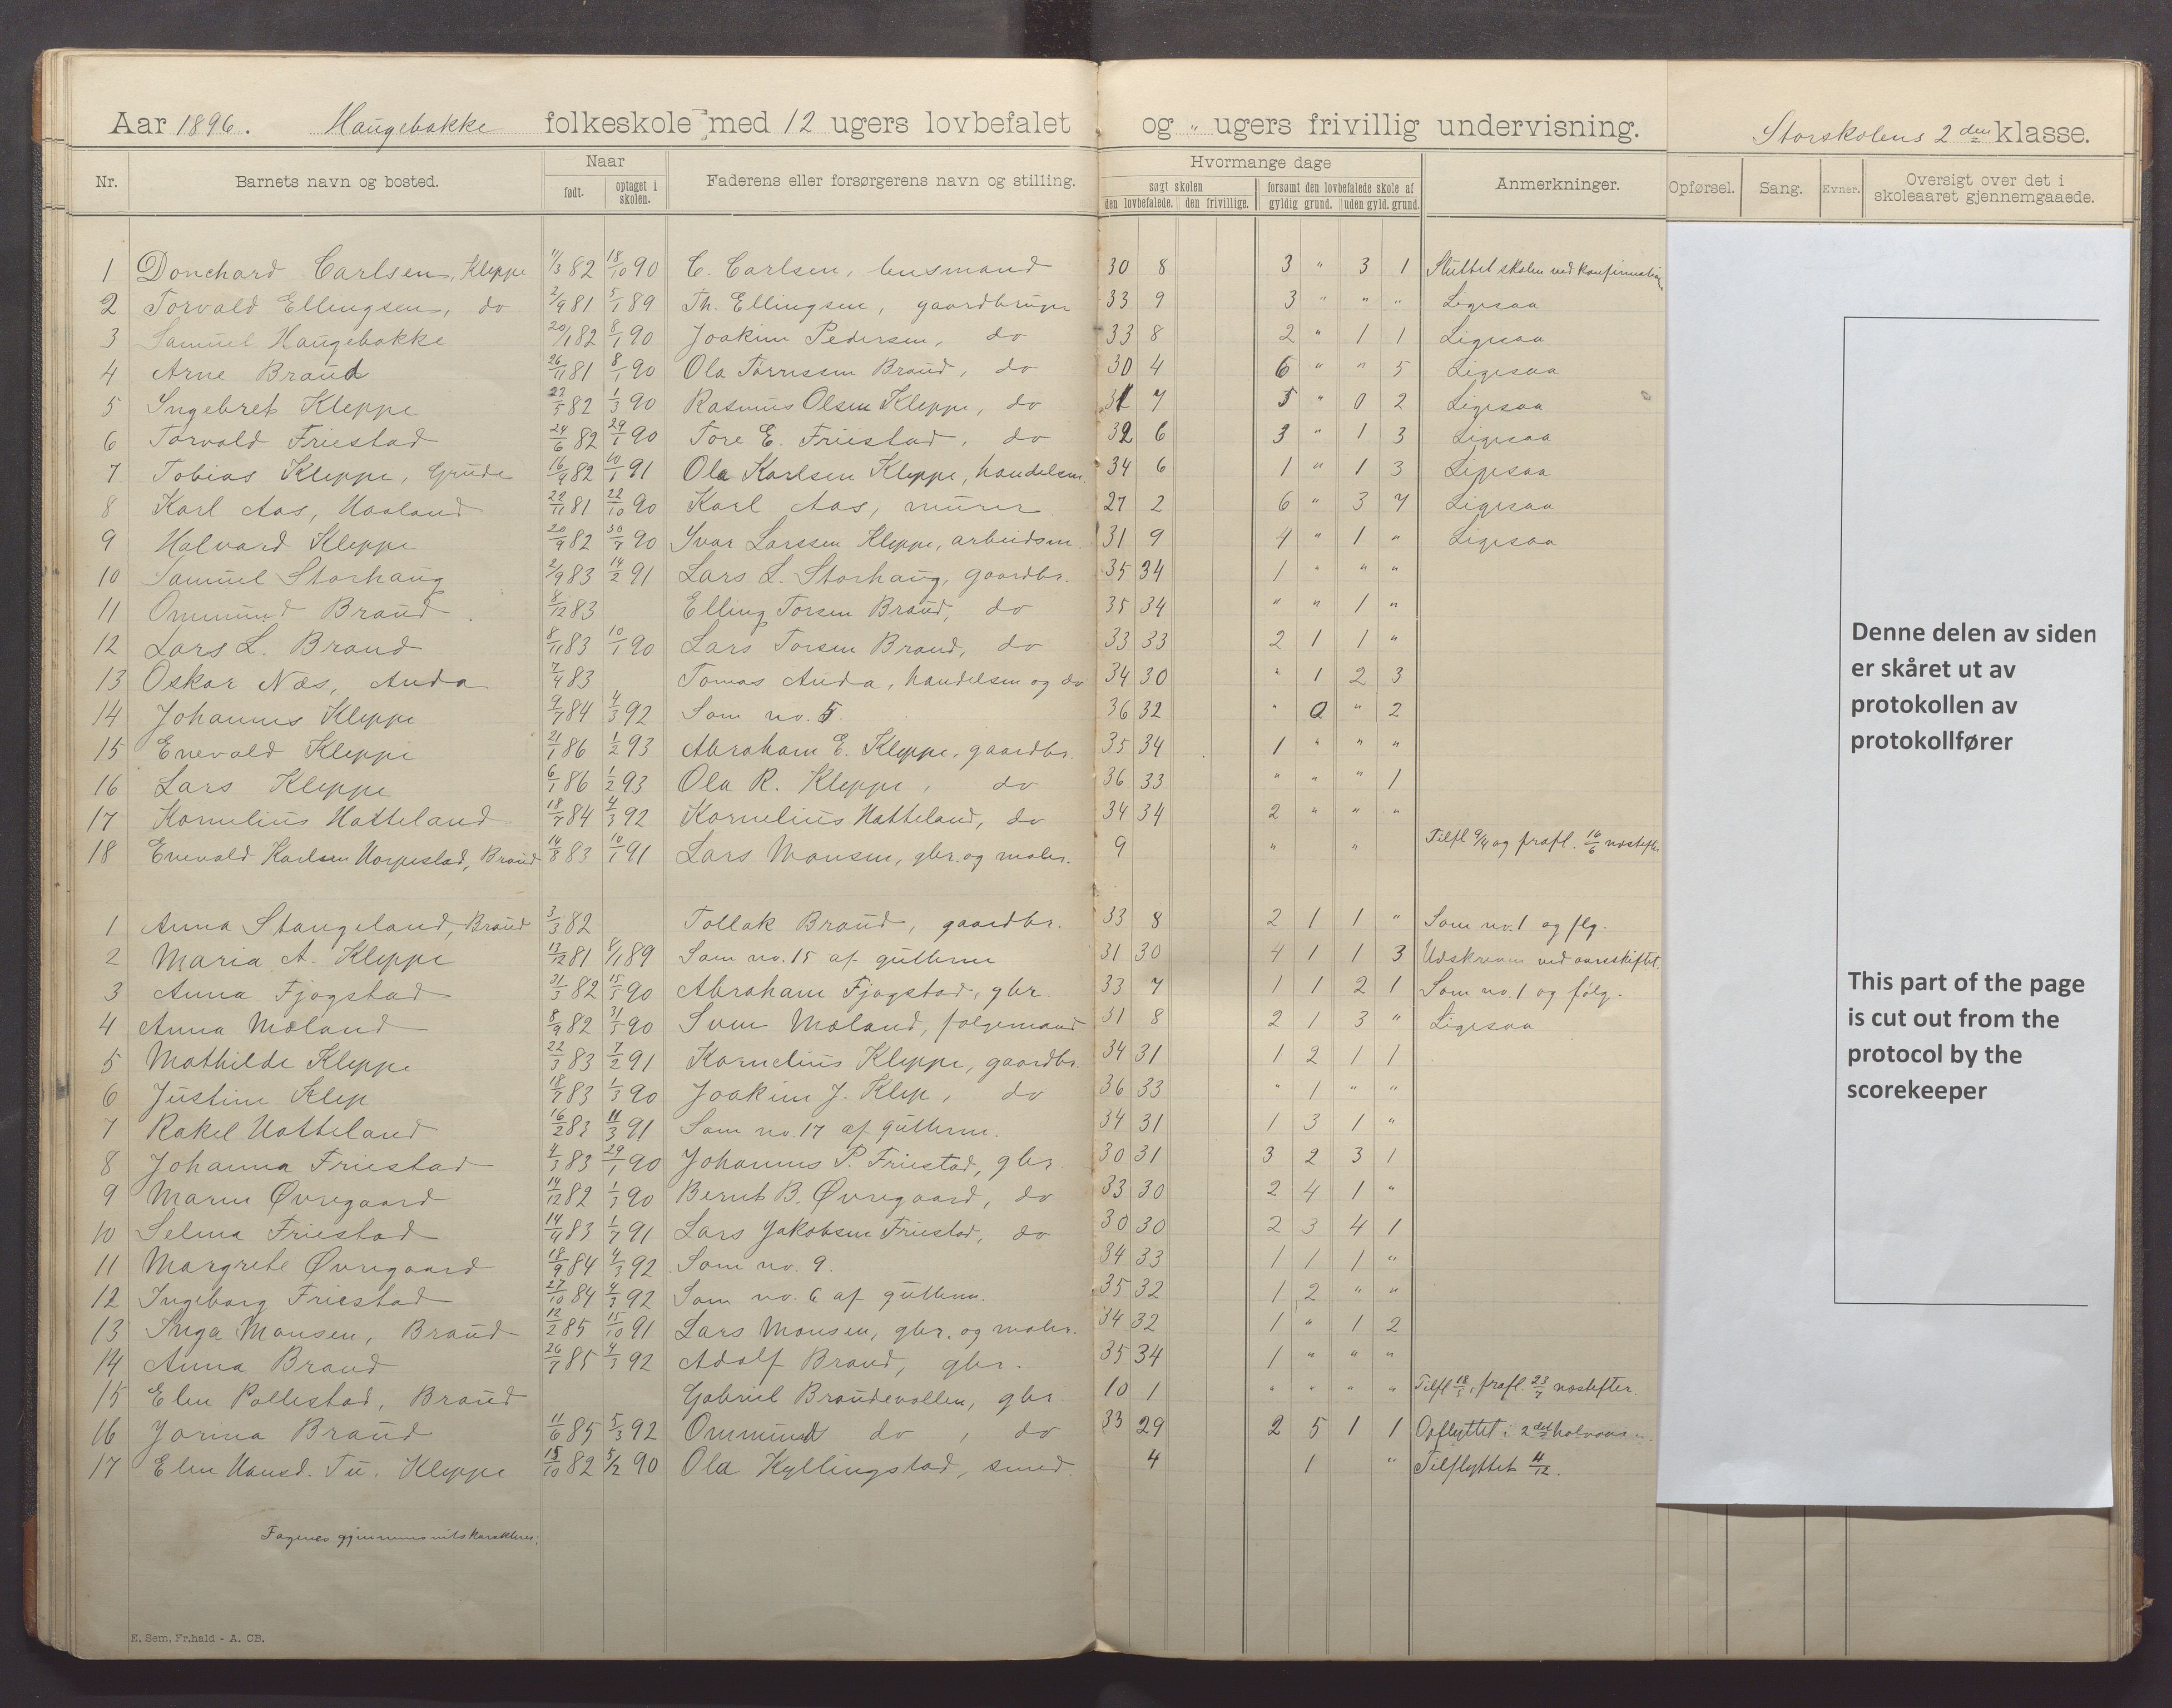 Aar 1896. Haugebakke folkeskole med 12 ugers lovbefalet og " ugers frivillig undervisning. Storskolens 2den klasse.
Nr. Barnets navn og bosted. Naar født. optaget i skolen. Faderens eller forsørgerens navn og stilling. Hvormange dage søgt skolen den lovbefalede. den frivillige. forsømt den lovbefalede skole af gyldig grund. uden gyld. grund. Anmerkninger. Opførsel. Sang. Evner. Oversigt over det i skoleaaret gjennemgaaede.
1 Donchard Carlsen, Kleppe 11/3 82 18/10 90 C. Carlsen, husmand 30 8 3 " 3 1 Sluttet skolen ved konfirmation
2 Torvald Ellingsen, do 2/9 81 5/1 89 Th. Ellingsen, gaardbruger 33 9 3 " " " Ligesaa
3 Samuel Haugebakke 20/1 82 8/1 90 Joakim Pedersen, do 33 8 2 " 1 1 Ligesaa
4 Arne Braud 26/11 81 8/1 90 Ola Tørressen Braud, do 30 4 6 " " 5 Ligesaa
5 Ingebret Kleppe 22/5 82 1/3 90 Rasmus Olsen Kleppe, do 31 7 5 " 0 2 Ligesaa
6 Torvald Friestad 24/6 82 29/1 90 Tore E. Friestad, do 32 6 3 " 1 3 Ligesaa
7 Tobias Kleppe, Grude 16/9 82 10/1 91 Ola Karlsen Kleppe, handelsm. 34 6 1 " 1 3 Ligesaa
8 Karl Aas, Haaland 22/11 81 22/10 90 Karl Aas, murer 27 2 6 " 3 7 Ligesaa
9 Halvard Kleppe 20/9 82 30/7 90 Ivar Larssen Kleppe, arbeidsm. 31 9 4 " 1 " Ligesaa
10 Samuel Storhaug 2/9 83 14/2 91 Lars L. Storhaug, gaardbr. 35 34 1 " " "
11 Ommund Braud 8/12 83 Elling Torsen Braud, do 35 34 " " 1 "
12 Lars L. Braud 8/11 83 10/1 90 Lars Torsen Braud, do 33 33 2 1 1 "
13 Oskar Næs, Anda 7/4 83 Tomas Anda, handelsm og do 34 30 " 1 2 3
14 Johannes Kleppe 9/7 84 4/3 92 Som no. 5. 36 32 " 0 " 2
15 Enevald Kleppe 21/1 86 1/2 93 Abraham E. Kleppe, gaardbr. 35 34 1 " " "
16 Lars Kleppe 6/1 86 1/2 93 Ola R. Kleppe, do 36 33 " " " 1
17 Kornelius Hatteland 18/7 84 4/3 92 Kornelius Hatteland, do 34 34 2 " " "
18 Enevald Karlsen Horpestad, Braud 14/8 83 10/1 91 Lars Monsen, gbr. og maler. 9 " " Tilfl 9/4 og frafl. 16/6 næstefter.
1 Anna Stangeland, Braud 3/3 82 Tollak Braud, gaardbr. 33 8 2 1 1 " Som no. 1 og flg.
2 Maria A. Kleppe 13/12 81 8/1 89 Som no. 15 af gutterne 31 30 4 1 1 3 Udskreven ved aarsskiftet.
3 Anna Fjogstad 31/3 82 15/5 90 Abraham Fjogstad, gbr. 33 7 1 1 2 1 Som no. 1 og følg.
4 Anna Mæland 8/9 82 31/5 90 Sven Mæland, følgemand 31 8 2 1 3 " Ligesaa
5 Mathilde Kleppe 22/3 83 7/2 91 Kornelius Kleppe, gaardbr. 34 31 1 2 1 1
6 Justine Klep 18/7 83 1/3 90 Joakim J. Klep, do 36 33 " 1 " "
7 Rakel Hatteland 16/2 83 11/3 91 Som no. 17 af gutterne. 34 31 1 3 1 "
8 Johanna Friestad 4/3 83 29/1 90 Johannes P. Friestad, gbr 30 31 3 2 3 1
9 Maren Øvregaard 14/12 82 1/3 90 Bernt B. Øvregaard, do 33 30 2 4 1 "
10 Selma Friestad 14/4 83 1/7 91 Lars Jakobsen Friestad, do 30 30 2 3 4 1
11 Margrete Øvregaard 18/9 84 4/3 92 Som no. 9. 34 33 1 1 1 "
12 Ingeborg Friestad 27/10 84 4/3 92 Som no. 6 af gutterne. 35 32 1 2 " "
13 Inga Monsen, Braud 12/2 85 15/10 91 Lars Monsen, gbr. og maler. 34 32 1 " 1 2
14 Anna Braud 26/7 85 4/3 92 Adolf Braud, gbr. 35 34 1 " " "
15 Elen Pollestad, Braud Gabriel Braudevollen, gbr. 10 1 " " " " Tilfl 18/5, frafl. 23/7 næstefter.
16 Jorina Braud 11/6 85 5/3 92 Ommund do, do 33 29 2 5 1 1 Opflyttet i 2det halvaar
17 Elen Hansd. Tu, Kleppe 15/10 82 5/2 90 Ola Kyllingstad, smed 4 1 " Tilflyttet 4/12.
Fagenes gjennemsnitskarakterer:
E. Sem, Fr.hald - A. CB.
Denne delen av siden
er skåret ut av
protokollen av
protokollfører
This part of the page
is cut out from the
protocol by the
scorekeeper